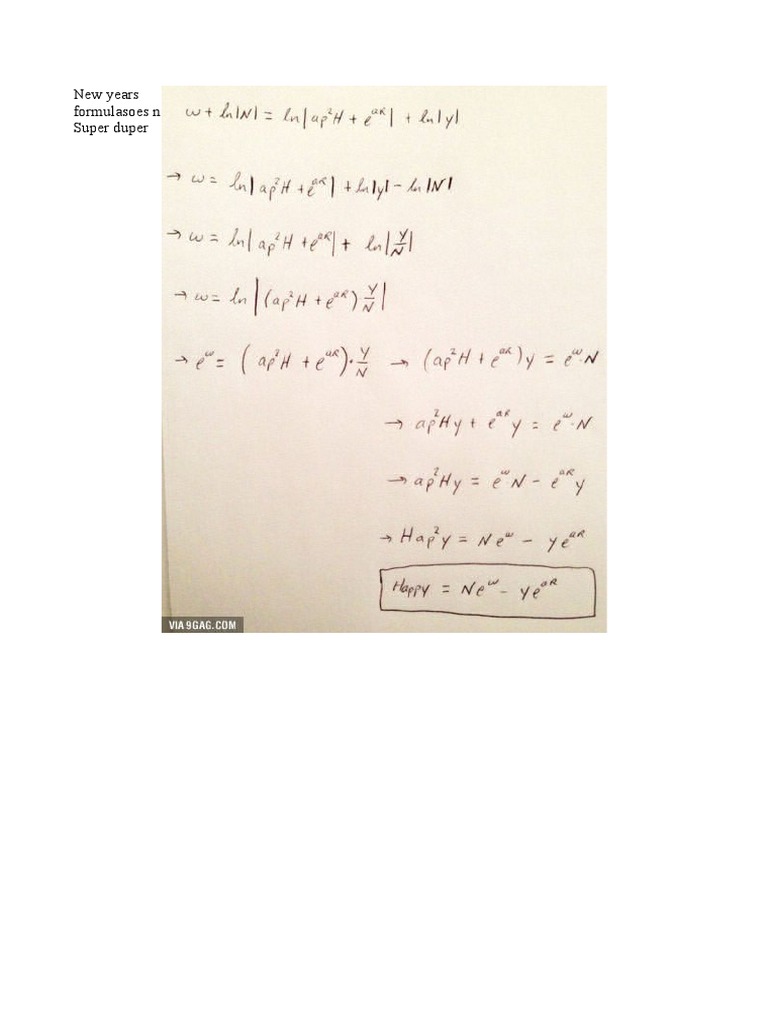 New years
formulasoes n
Super duper
w + ln|N| = ln|ap²H + e^aR| + ln|y|
→ w = ln|ap²H + e^aR| + ln|y| - ln|N|
→ w = ln|ap²H + e^aR| + ln|Y/N|
→ w = ln|(ap²H + e^aR) Y/N|
→ e^w = (ap²H + e^aR) · Y/N → (ap²H + e^aR)y = e^w · N
→ ap²Hy + e^aR y = e^w · N
→ ap²Hy = e^w N - e^aR y
→ Hap²y = Ne^w - ye^aR
Happy = Ne^w - ye^aR
VIA 9GAG.COM